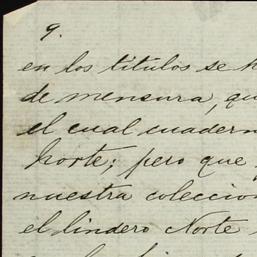 9.
en los títulos se h
de mensura, qu
el cual cuadern
horte; pero que
nuestra coleccion
el lindero Norte